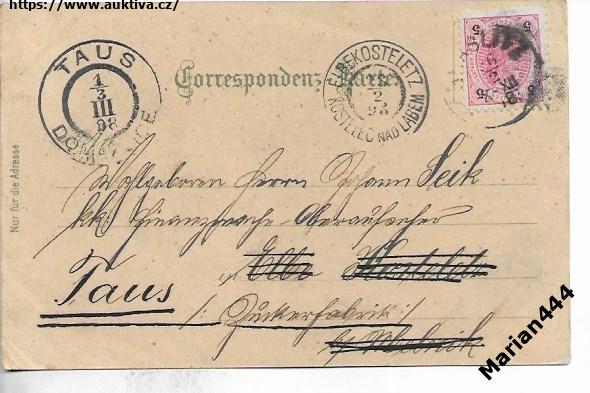 https://www.auktiva.cz/
TAUS
4/3
III
98
DOMAŽLICE
Correspondenz-Karte
ELBEKOSTELETZ
2
98
KOSTELEC NAD LABEM
5
5
Nur für die Adresse
Wohlgeboren Herrn Johann Seik
kk: Finanzwache-Oberaufseher
in Elbe Kosteletz
Taus
/: Zuckerfabrik :/
b/ Melnik
Marian444